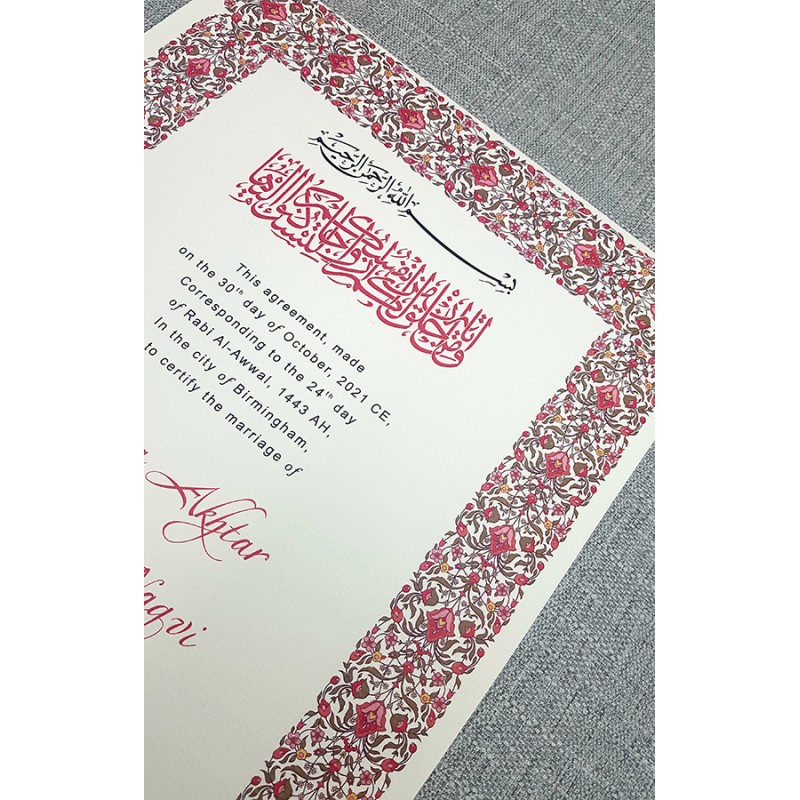 بسم الله الرحمن الرحيم
ومن آياته أن خلق لكم من أنفسكم أزواجا لتسكنوا إليها
This agreement, made
on the 30th day of October, 2021 CE,
Corresponding to the 24th day
of Rabi Al-Awwal, 1443 AH,
in the city of Birmingham,
to certify the marriage of
Akhtar
Naqvi